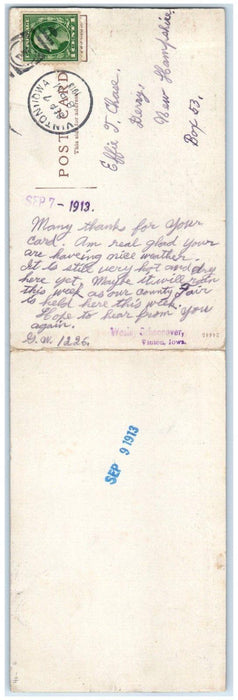 VINTON, IOWA
POST CARD
Effie T. Chase.
Derry,
New Hampshire,
Box 53.
SEP 7 - 1913.
Many thank for your
card. Am real glad your
are having nice weather.
It is still very hot and dry
here yet. Maybe it will rain
this week as our County Fair
is held here this week.
Hope to hear from you
again.
G.W. 1226.
Vinton, Iowa.
SEP 9 1913